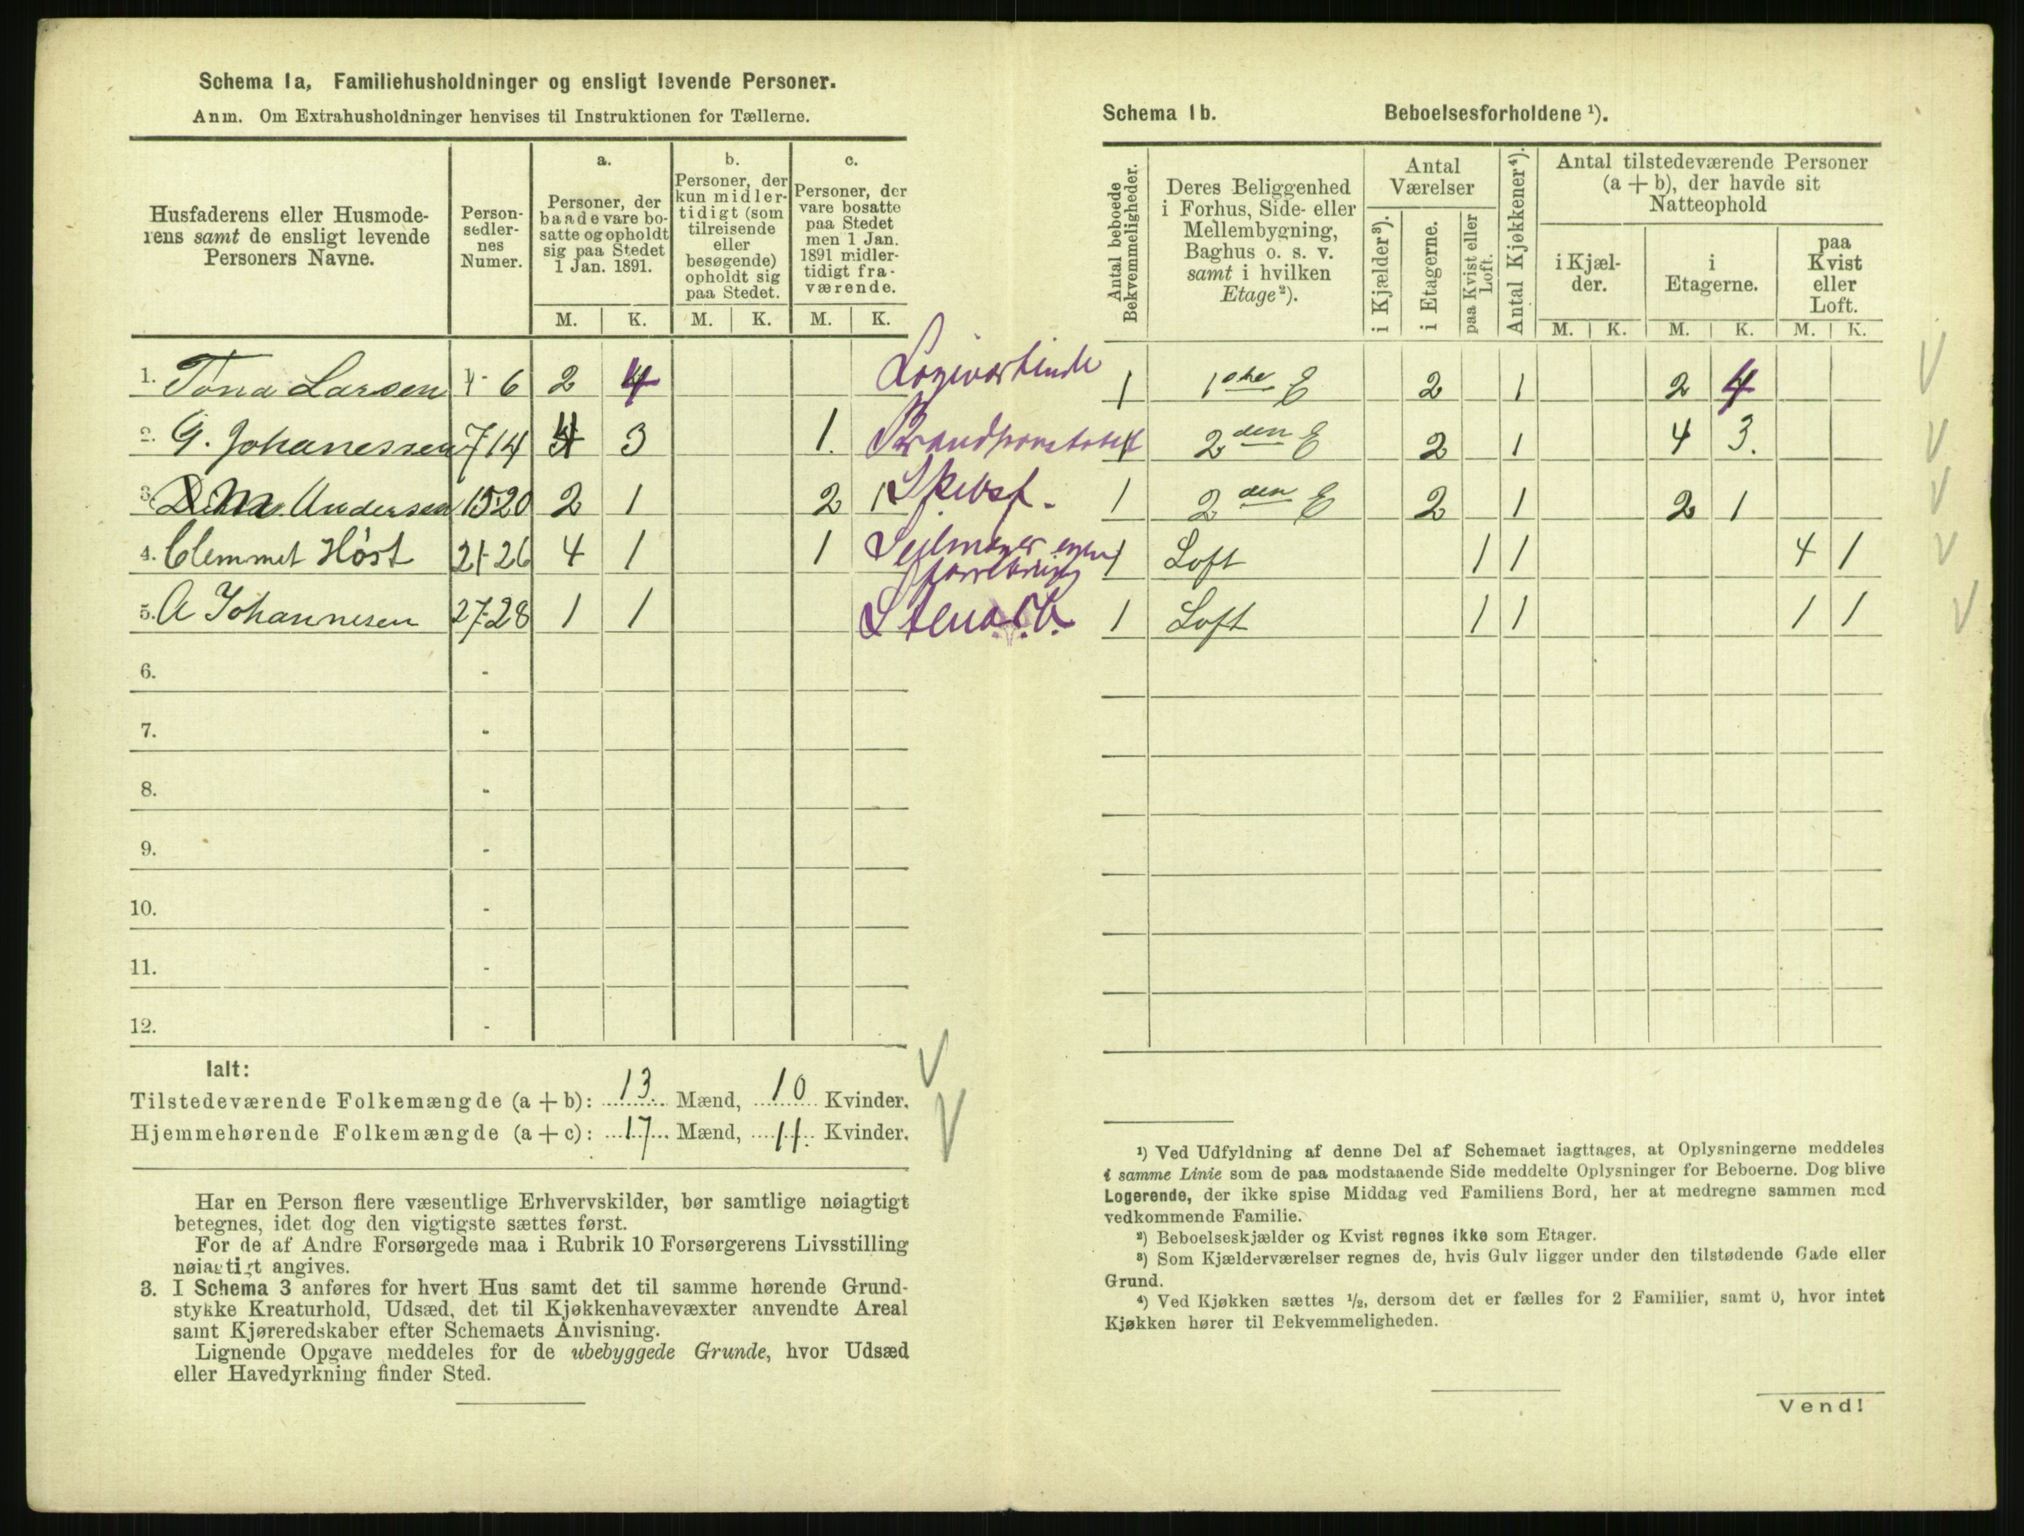 Schema 1a, Familiehusholdninger og ensligt levende Personer.
Anm. Om Extrahusholdninger henvises til Instruktionen for Tællerne.
Husfaderens eller Husmoderens samt de ensligt levende Personers Navne.
Personsedlernes Numer.
a. Personer, der baade vare bosatte og opholdt sig paa Stedet 1 Jan. 1891.
b. Personer, der kun midlertidigt (som tilreisende eller besøgende) opholdt sig paa Stedet.
c. Personer, der vare bosatte paa Stedet men 1 Jan. 1891 midlertidigt fraværende.
M. K. M. K. M. K.
1. Tona Larsen 1-6 2 4
2. G. Johanessen 7 14 4 3 1.
3. Andersen 15-20 2 1 2 1
4. Clemmet Høst 21-26 4 1 1
5. A Johannesen 27-28 1 1
6. -
7. -
8. -
9. -
10. -
11. -
12. -
Ialt:
Tilstedeværende Folkemængde (a + b): 13 Mænd, 10 Kvinder.
Hjemmehørende Folkemængde (a + c): 17 Mænd, 11 Kvinder.
Har en Person flere væsentlige Erhvervskilder, bør samtlige nøiagtigt
betegnes, idet dog den vigtigste sættes først.
For de af Andre Forsørgede maa i Rubrik 10 Forsørgerens Livsstilling
nøiagtigt angives.
3. I Schema 3 anføres for hvert Hus samt det til samme hørende Grund-
stykke Kreaturhold, Udsæd, det til Kjøkkenhavevæxter anvendte Areal
samt Kjøreredskaber efter Schemaets Anvisning.
Lignende Opgave meddeles for de ubebyggede Grunde, hvor Udsæd
eller Havedyrkning finder Sted.
Schema 1b. Beboelsesforholdene ¹).
Antal beboede Bekvemmeligheder.
Deres Beliggenhed i Forhus, Side- eller Mellembygning, Baghus o. s. v. samt i hvilken Etage²).
Antal Værelser
i Kjælder³).
i Etagerne.
paa Kvist eller Loft.
Antal Kjøkkener⁴).
Antal tilstedeværende Personer (a + b), der havde sit Natteophold
i Kjælder.
i Etagerne.
paa Kvist eller Loft.
M. K. M. K. M. K.
Logivertinde 1 1ste E 2 1 2 4
1 2den E 2 1 4 3.
1 2den E 2 1 2 1
1 Loft 1 1 4 1
1 Loft 1 1 1 1
¹) Ved Udfyldning af denne Del af Schemaet iagttages, at Oplysningerne meddeles
i samme Linie som de paa modstaaende Side meddelte Oplysninger for Beboerne. Dog blive
Logerende, der ikke spise Middag ved Familiens Bord, her at medregne sammen med
vedkommende Familie.
²) Beboelseskjælder og Kvist regnes ikke som Etager.
³) Som Kjælderværelser regnes de, hvis Gulv ligger under den tilstødende Gade eller
Grund.
⁴) Ved Kjøkken sættes ½, dersom det er fælles for 2 Familier, samt 0, hvor intet
Kjøkken hører til Bekvemmeligheden.
Vend!